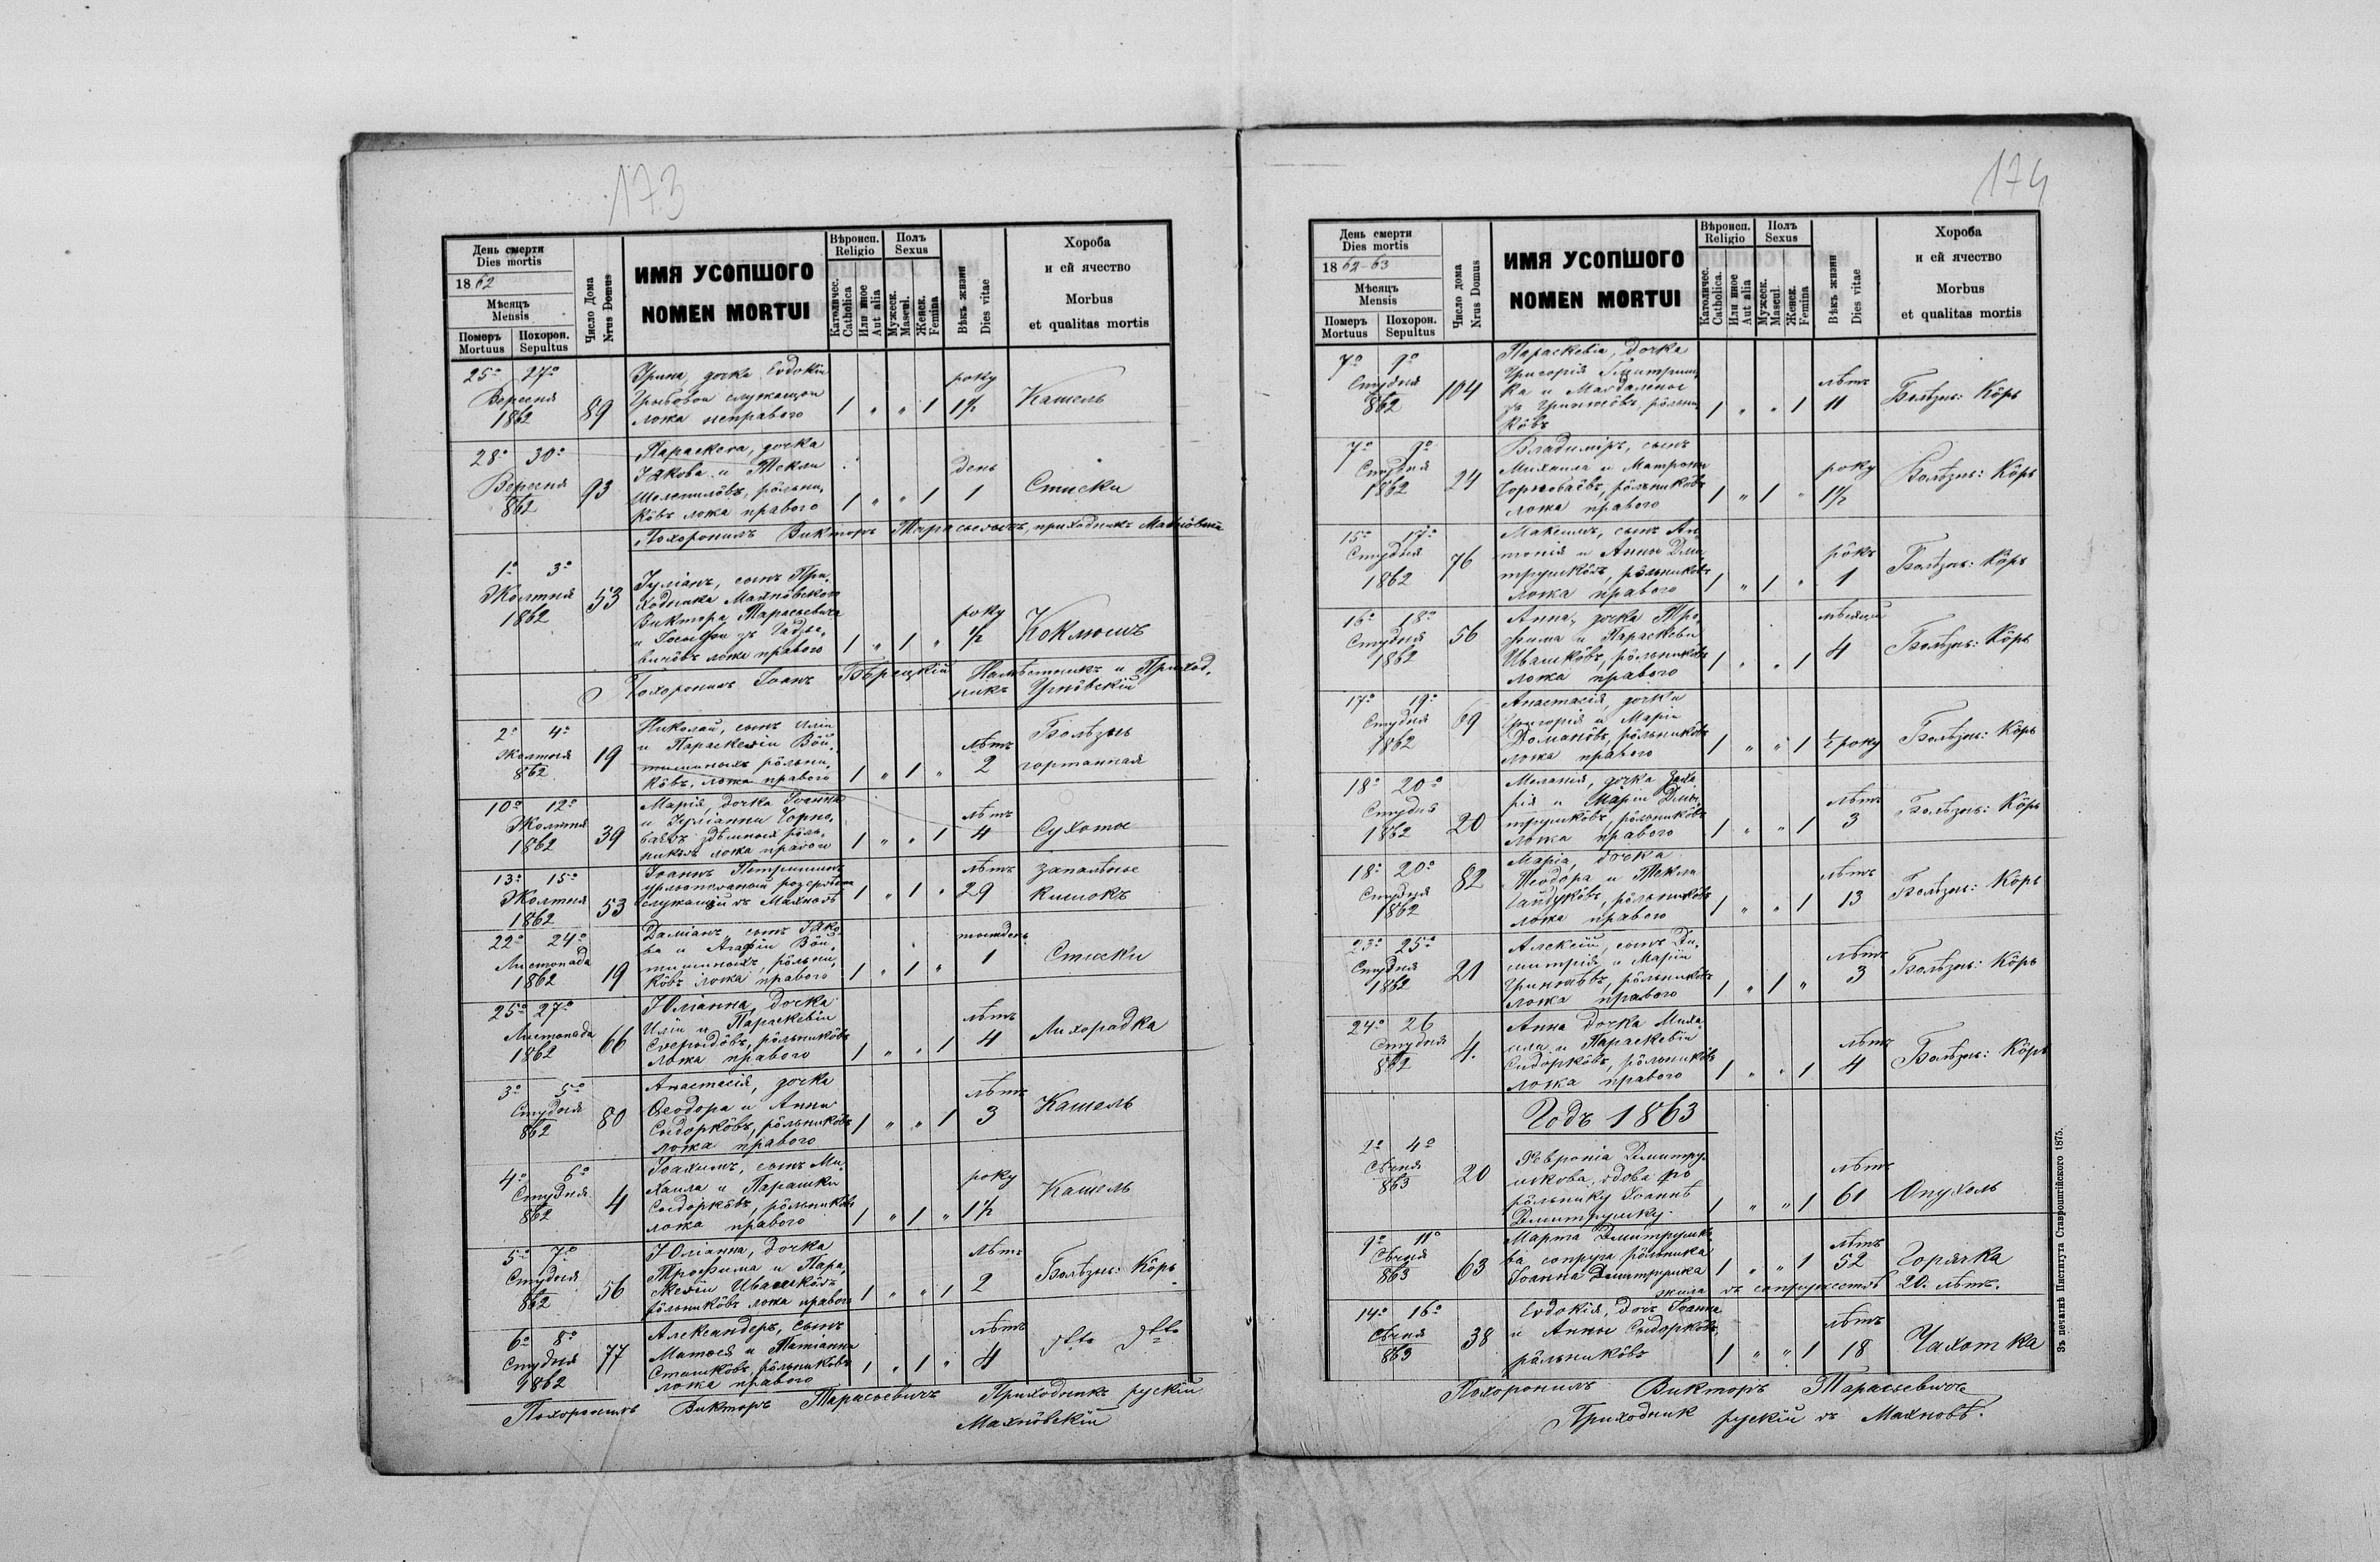 173
День смерти
Dies mortis
1862
Мѣсяцъ
Mensis
Померъ
Mortuus
Похорон.
Sepultus
Число Дома
Nrus Domus
ИМЯ УСОПШОГО
NOMEN MORTUI
Вѣроисп.
Religio
Католичес.
Catholica
Или иное
Aut alia
Полъ
Sexus
Мужеск.
Mascul.
Женск.
Femina
Вѣкъ жизни
Dies vitae
Хороба
и ей ячество
Morbus
et qualitas mortis
25º 27º
Вересня
1862
89
Ирина, дочка Евдокіи
служащои
ложа неправого
1 " " 1
року
1½
Кашель
28º 30º
Вересня
862
93
Параскева, дочка
Якова и Текли
рôльни,
кôвъ ложа правого
1 " " 1
день
1
Стиски
Похоронилъ Викторъ Тарасьевичъ, приходникъ Махнôвскій
1º 3º
Жолтня
1862
53
Іуліанъ, сынъ При,
ходника Махнôвского
Виктора Тарасьевича
и Іосифы зъ
вичôвъ ложа правого
1 " 1 "
року
½
Коклюшъ
Похоронилъ Іоанъ Намѣстникъ и Приход,
никъ Угнôвскій
2º 4º
Жолтня
862
19
Николай, сынъ Иліи
и Параскевіи Вôй,
рôльни,
кôвъ, ложа правого
1 " 1 "
лѣтъ
2
Болѣзнь
гортанная
10º 12º
Жолтня
1862
39
Марія, дочка Іоанна
и Іуліанны Чорно,
здѣшныхъ рôль,
никôвъ ложа правого
1 " " 1
лѣтъ
4
Сухоты
13º 15º
Жолтня
1862
53
Іоаннъ
служащій въ Махновѣ
1 " 1 "
лѣтъ
29
запаленье
кишокъ
22º 24º
Листопада
1862
19
Даміанъ, сынъ Яко,
ва и Агафіи Вôй,
рôльни,
кôвъ ложа правого
1 " 1 "
тыждень
1
Стиски
25º 27º
Листопада
1862
66
Юліанна, дочка
Иліи и Параскевіи
рôльникôвъ
ложа правого
1 " " 1
лѣтъ
4
Лихорадка
3º 5º
Студня
862
80
Анастасія, дочка
Ѳеодора и Анны
Сыдоркôвъ, рôльникôвъ
ложа правого
1 " " 1
лѣтъ
3
Кашель
4º 6º
Студня
862
4
Іоахимъ, сынъ Ми,
хаила и Парашки
Сыдоркôвъ, рôльникôвъ
ложа правого
1 " 1 "
року
1½
Кашель
5º 7º
Студня
862
56
Юліанна, дочка
Трофима и Пара,
скевіи Ивашкôвъ
рôльникôвъ ложа правого
1 " " 1
лѣтъ
2
Болѣзнь: Кôрь
6º 8º
Студня
1862
77
Александеръ, сынъ
Матвея и Татіанны
Сташкôвъ, рôльникôвъ
ложа правого
1 " 1 "
лѣтъ
4
dtto dtto
Похоронилъ Викторъ Тарасьевичъ Приходникъ рускій
Махнôвскій
174
День смерти
Dies mortis
1862-63
Мѣсяцъ
Mensis
Померъ
Mortuus
Похорон.
Sepultus
Число дома
Nrus Domus
ИМЯ УСОПШОГО
NOMEN MORTUI
Вѣроисп.
Religio
Католичес.
Catholica.
Или иное
Aut alia
Полъ
Sexus
Мужеск.
Mascul.
Женск.
Femina
Вѣкъ жизни
Dies vitae
Хороба
и ей ячество
Morbus
et qualitas mortis
7º 9º
Студня
862
104
Параскевіа, дочка
Григорія
ка и Магдалены
зъ рôльни,
кôвъ
1 " " 1
лѣтъ
11
Болѣзнь: Кôрь
7º 9º
Студня
1862
24
Владиміръ, сынъ
Михаила и Матроны
рôльникôвъ
ложа правого
1 " 1 "
року
1½
Болѣзнь: Кôрь
15º 17º
Студня
1862
76
Максимъ, сынъ Ан,
тонія и Анны Дми,
трушкôвъ, рôльникôвъ
ложа правого
1 " 1 "
рôкъ
1
Болѣзнь: Кôрь
16º 18º
Студня
1862
56
Анна, дочка Тро,
фима и Параскевы
Ивашкôвъ, рôльникôвъ
ложа правого
1 " " 1
мѣсяцы
4
Болѣзнь: Кôрь
17º 19º
Студня
1862
69
Анастасія, дочка
Григорія и Маріи
Доманôвъ, рôльникôвъ
ложа правого
1 " " 1
½ року
Болѣзнь: Кôрь
18º 20º
Студня
1862
20
Меланія, дочка Заха,
рія и Маріи Дми,
трушкôвъ, рôльникôвъ
ложа правого
1 " " 1
лѣтъ
3
Болѣзнь: Кôрь
18º 20º
Студня
1862
82
Маріа, дочка
Теодора и Текли
Гайдукôвъ, рôльникôвъ
ложа правого
1 " " 1
лѣтъ
13
Болѣзнь: Кôрь
23º 25º
Студня
1862
21
Алексій, сынъ Ди,
митрія и Маріи
рôльникôвъ
ложа правого
1 " 1 "
лѣтъ
3
Болѣзнь: Кôрь
24º 26
Студня
862
4.
Анна дочка Миха,
ила и Параскевіи
Сидоркôвъ, рôльникôвъ
ложа правого
1 " " 1
лѣтъ
4
Болѣзнь: Кôрь
Годъ 1863
2º 4º
Сѣчня
863
20
Февроніа Дмитру,
шкова, вдова по
рôльнику Іоаннѣ
Дмитрушку.
1 " " 1
лѣтъ
61
Опухоль
9º 11º
Сѣчня
863
63
Марта Дмитрушко,
ва супруга рôльника
Іоанна Дмитрушка
1 " " 1
лѣтъ
52
Горячка
жила въ супружествѣ 20. лѣтъ.
14º 16º
Сѣчня
863
38
Евдокія, дочь Іоанна
и Анны Сыдоркôвъ,
рôльникôвъ
1 " " 1
лѣтъ
18
Чахотка
Похоронилъ Викторъ Тарасьевичъ
Приходник рускій въ Махновѣ.
Зъ печатнѣ Института Ставропигійского 1875.